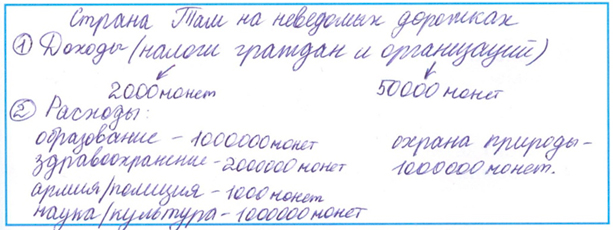 Страна Там на неведомых дорожках
① Доходы (налоги граждан и организаций)
2000 монет 50000 монет
② Расходы:
образование – 1000000 монет охрана природы –
здравоохранение – 2000000 монет 1000000 монет.
армия/полиция – 1000 монет
наука/культура – 1000000 монет